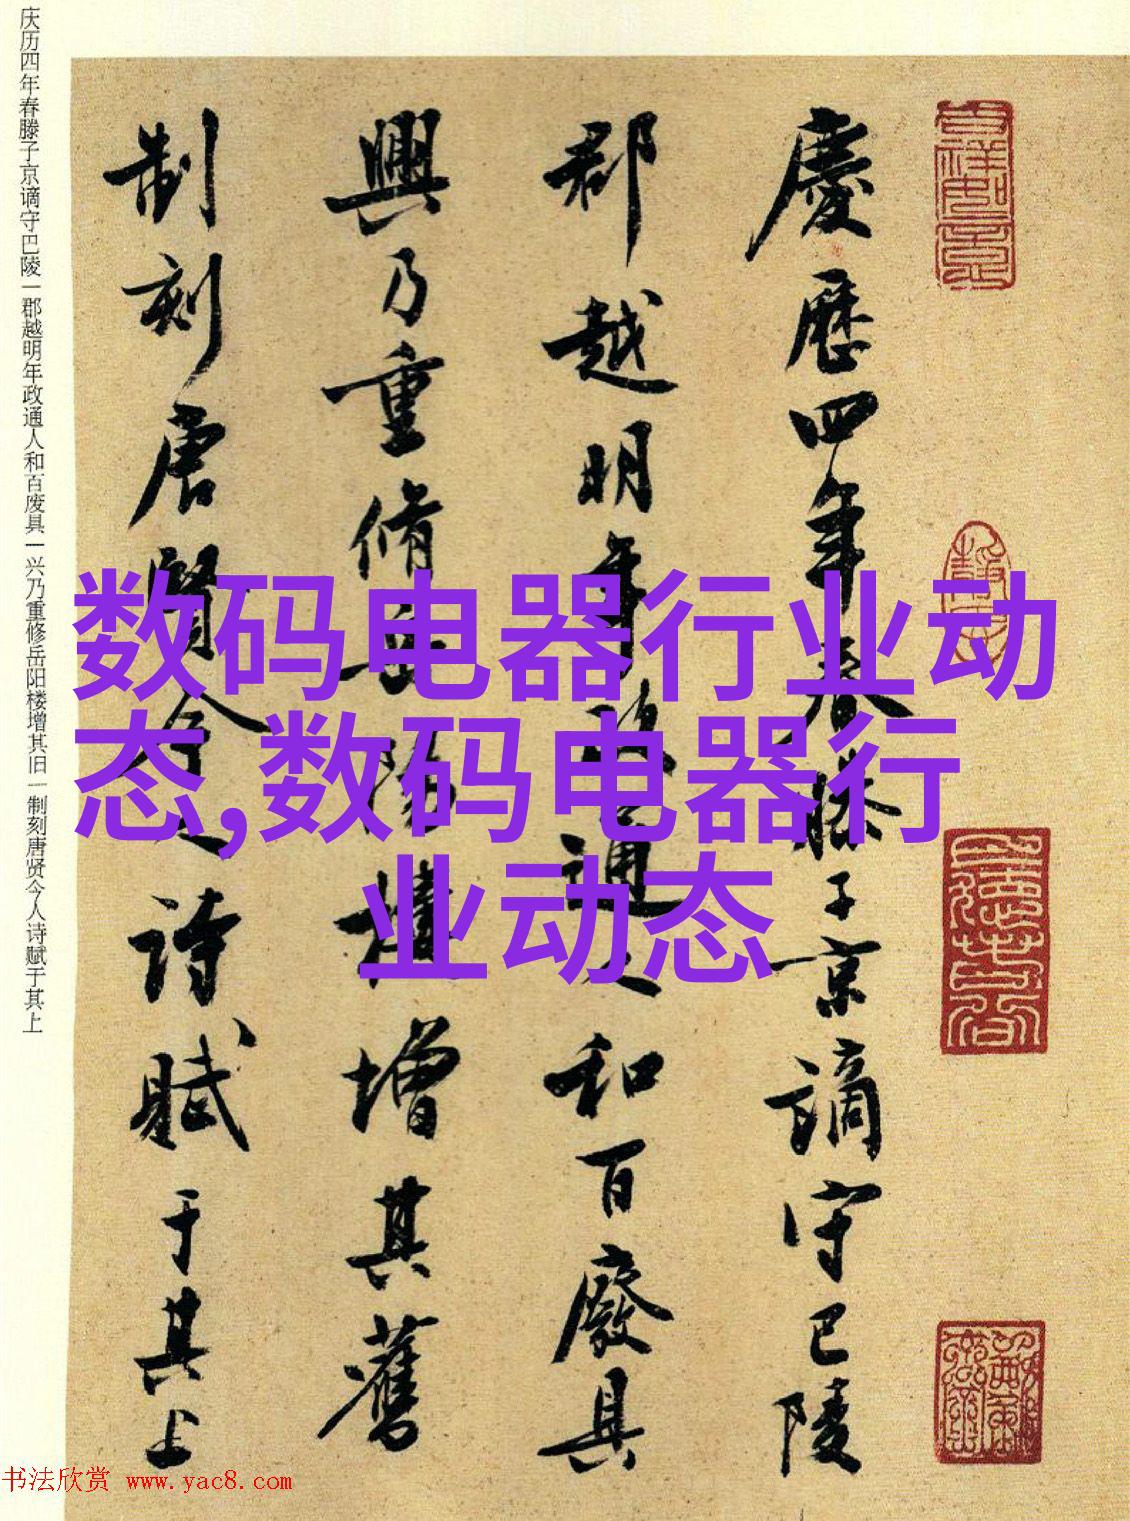 慶歷四年春滕子京謫守巴陵
郡越明年政通人和百廢具
興乃重脩岳陽樓增其舊
制刻唐賢今人詩賦于其上
庆历四年春滕子京谪守巴陵一郡越明年政通人和百废具一兴乃重修岳阳楼增其旧一制刻唐贤今人诗赋于其上
数码电器行业动
态,数码电器行
业动态
书法欣赏 www.yac8.com